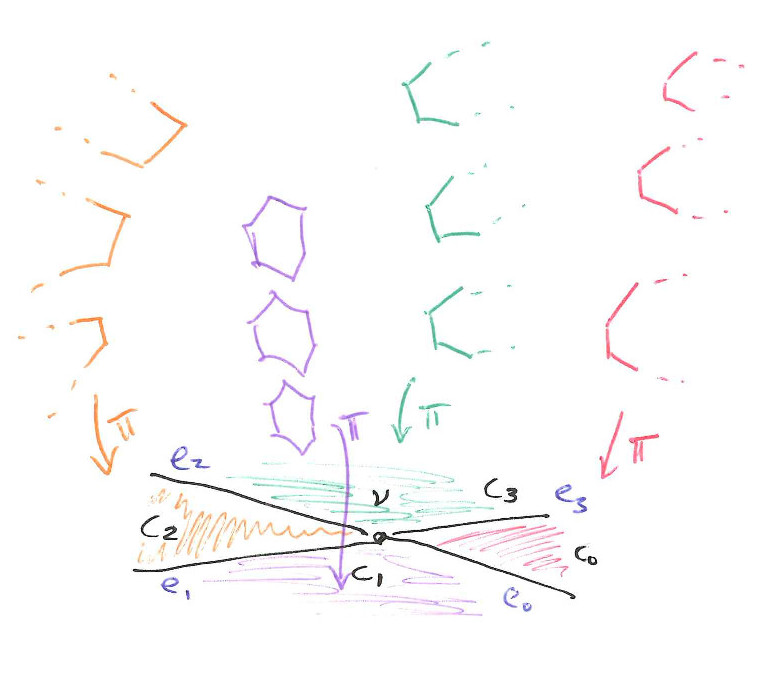 π
π
π
π
e₂
ν
C₃
e₃
C₂
C₀
C₁
e₁
e₀